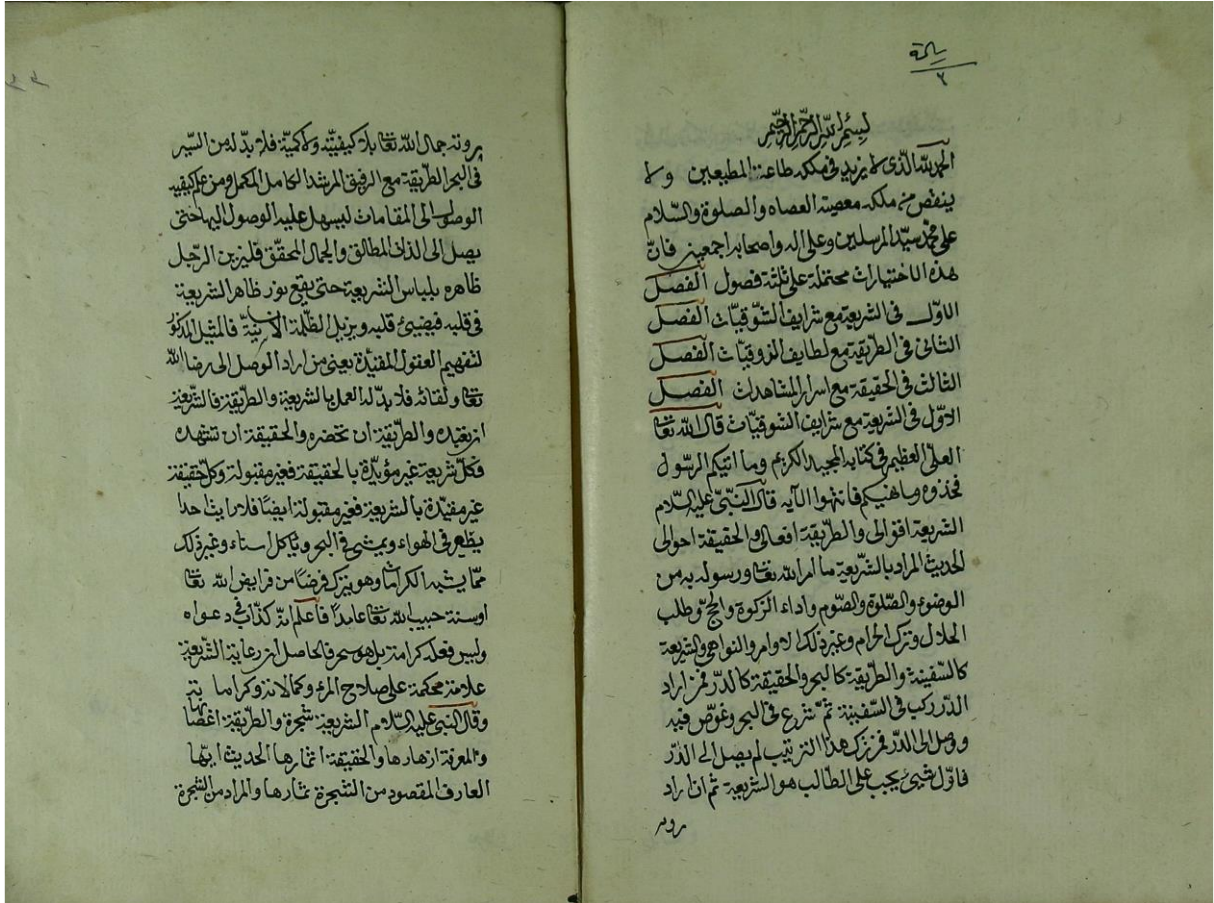 رسالة
٢
بسم الله الرحمن الرحيم
الحمد لله الذى لا يزيد فى ملكه طاعة المطيعين ولا
ينقص من ملكه معصية العصاه والصلوة والسلام
على محمد سيد المرسلين وعلى اله واصحابه اجمعين فانّ
هذه الاختيارات محتملة على ثلثة فصول الفصل
الاول فى الشريعة مع شرايف الشوقيّات الفصل
الثانى فى الطريقة مع لطايف الزوقيّات الفصل
الثالث فى الحقيقة مع اسرار المشاهدات الفصل
الاوّل فى الشريعة مع شرايف الشوقيّات قال الله تعا
العلىّ العظيم فى كتابه المجيد الكريم وما اتيكم الرسول
فخذوه وما نهيكم فانتهوا الآيه قال النّبىّ عليه السّلام
الشريعة اقوالى والطريقة افعالى والحقيقة احوالى
الحديث المراد بالشّريعة ما امر الله تعا ورسوله به من
الوضوء والصّلوة والصّوم واداء الزكوة والحجّ وطلب
الحلال وترك الحرام وغير ذلك الاوامر والنواهى والشريعة
كالسّفينة والطريقة كالبحر والحقيقة كالدرّ فمن اراد
الدّر ركب فى السّفينة ثمّ شرع فى البحر وغوّص فيه
ووصل الى الدّر فمن ترك هذا الترتيب لم يصل الى الدّر
فاوّل شيئ يجب على الطّالب هو الشريعة ثم ان اراد
روته
روته جمال الله تعا بلا كيفيّته ولا كميّة فلا بدّ له من السّير
فى البحر الطّريقة مع الرفيق المرشد الكامل المكمل ومن علم كيفيه
الوصول الى المقامات ليسهل عليه الوصول اليها حتى
يصل الى الذات المطالق والجمال المحقّق فليزين الرّجل
ظاهره بلباس الشريعة حتى يقع نور ظاهر الشريعة
فى قلبه فيضيئ قلبه ويزيل الظلمة الانسانيّة فالمثيل المذكور
لتفهيم العقول المقيّدة يعنى من اراد الوصل الى رضا الله
تعا ولقائه فلا بدّ له العمل بالشريعة والطريقة فالشريعة
ان تعبده والطّريقة ان تحضره والحقيقة ان تشهده
فكلّ شريعة غير مؤيّدة بالحقيقة فغير مقبولة وكلّ حقيقة
غير مقيّدة بالشريعة فغير مقبولة ايضًا فلا رايت احدا
يطير فى الهواء ويمشى فى البحر ويأكل وغير ذلك
ممّا يشبه الكرامات وهو يترك فرضًا من فرايض الله تعا
او سنة حبيب الله تعا عامدًا فاعلم انّه كذّاب فى دعواه
وليس فعله كرامة بل هو سحر فالحاصل ان رعاية الشّريعة
علامة محكمة على صلاح المرء وكمالاته وكراماته
وقال النبى عليه السّلام الشريعة شجرة والطّريقة اغصانها
والمعرفة ازهارها والحقيقة اثمارها الحديث ايّها
العارف المقصود من الشجرة ثمارها والمراد من الشجرة